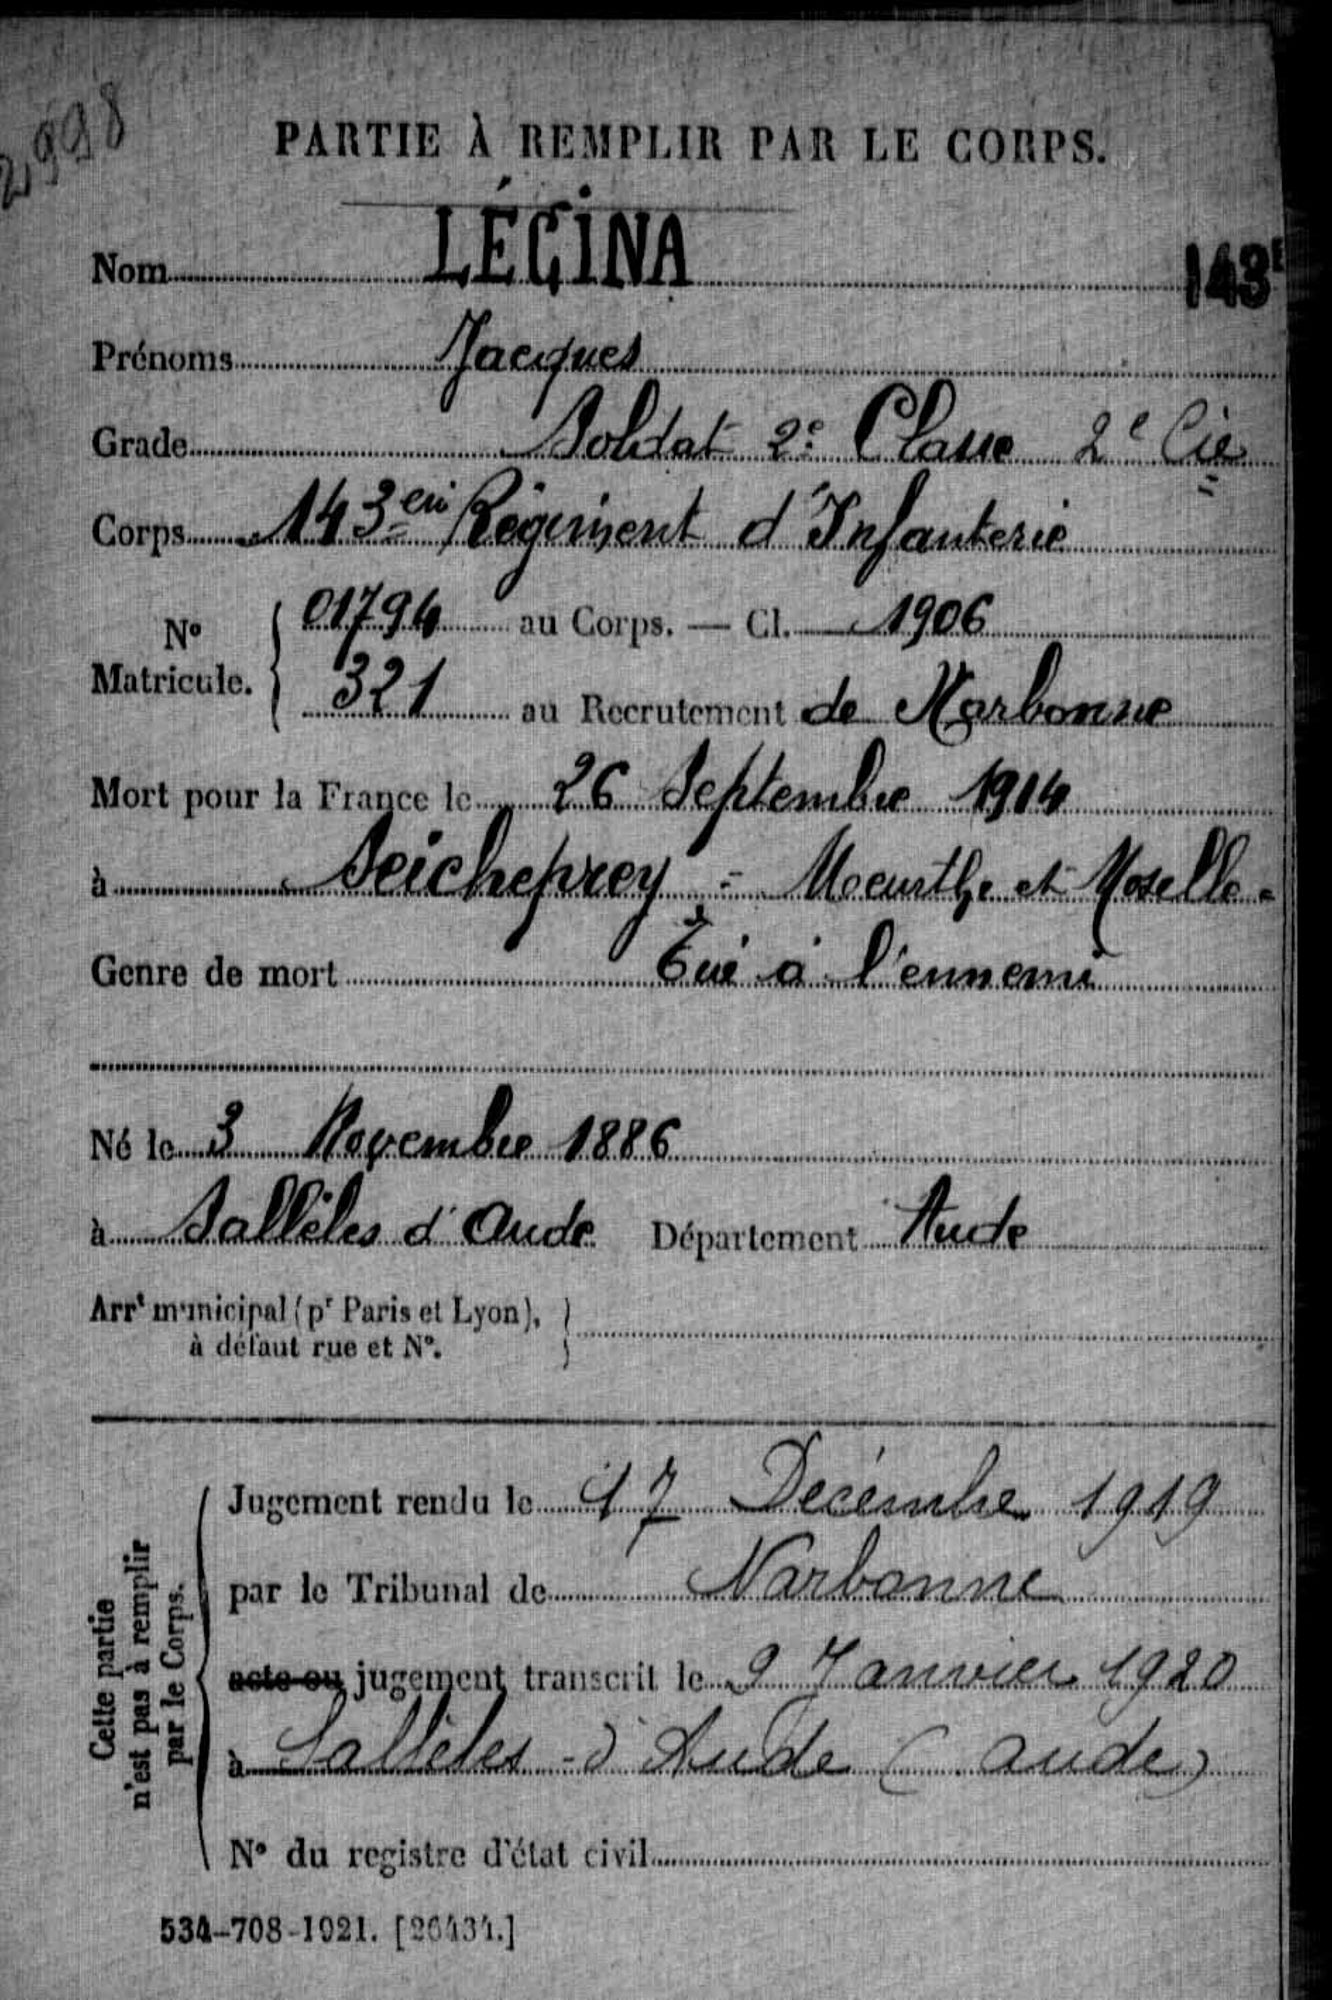 2,998
PARTIE À REMPLIR PAR LE CORPS.
Nom LÉÇINA
143E
Prénoms Jacques
Grade Soldat 2e Classe 2e Cie
Corps 143eme Régiment d'Infanterie
No Matricule. { 01794 au Corps. — Cl. 1906
321 au Recrutement de Narbonne
Mort pour la France le 26 Septembre 1914
à Seicheprey - Meurthe et Moselle -
Genre de mort Tué à l'ennemi
Né le 3 Novembre 1886
à Sallèles d'Aude Département Aude
Arrt municipal (pr Paris et Lyon), }
à défaut rue et No.
Cette partie
n'est pas à remplir
par le Corps.
Jugement rendu le 17 Décembre 1919
par le Tribunal de Narbonne
acte ou jugement transcrit le 9 Janvier 1920
à Sallèles - d'Aude (Aude)
No du registre d'état civil
534-708-1921. [26434.]